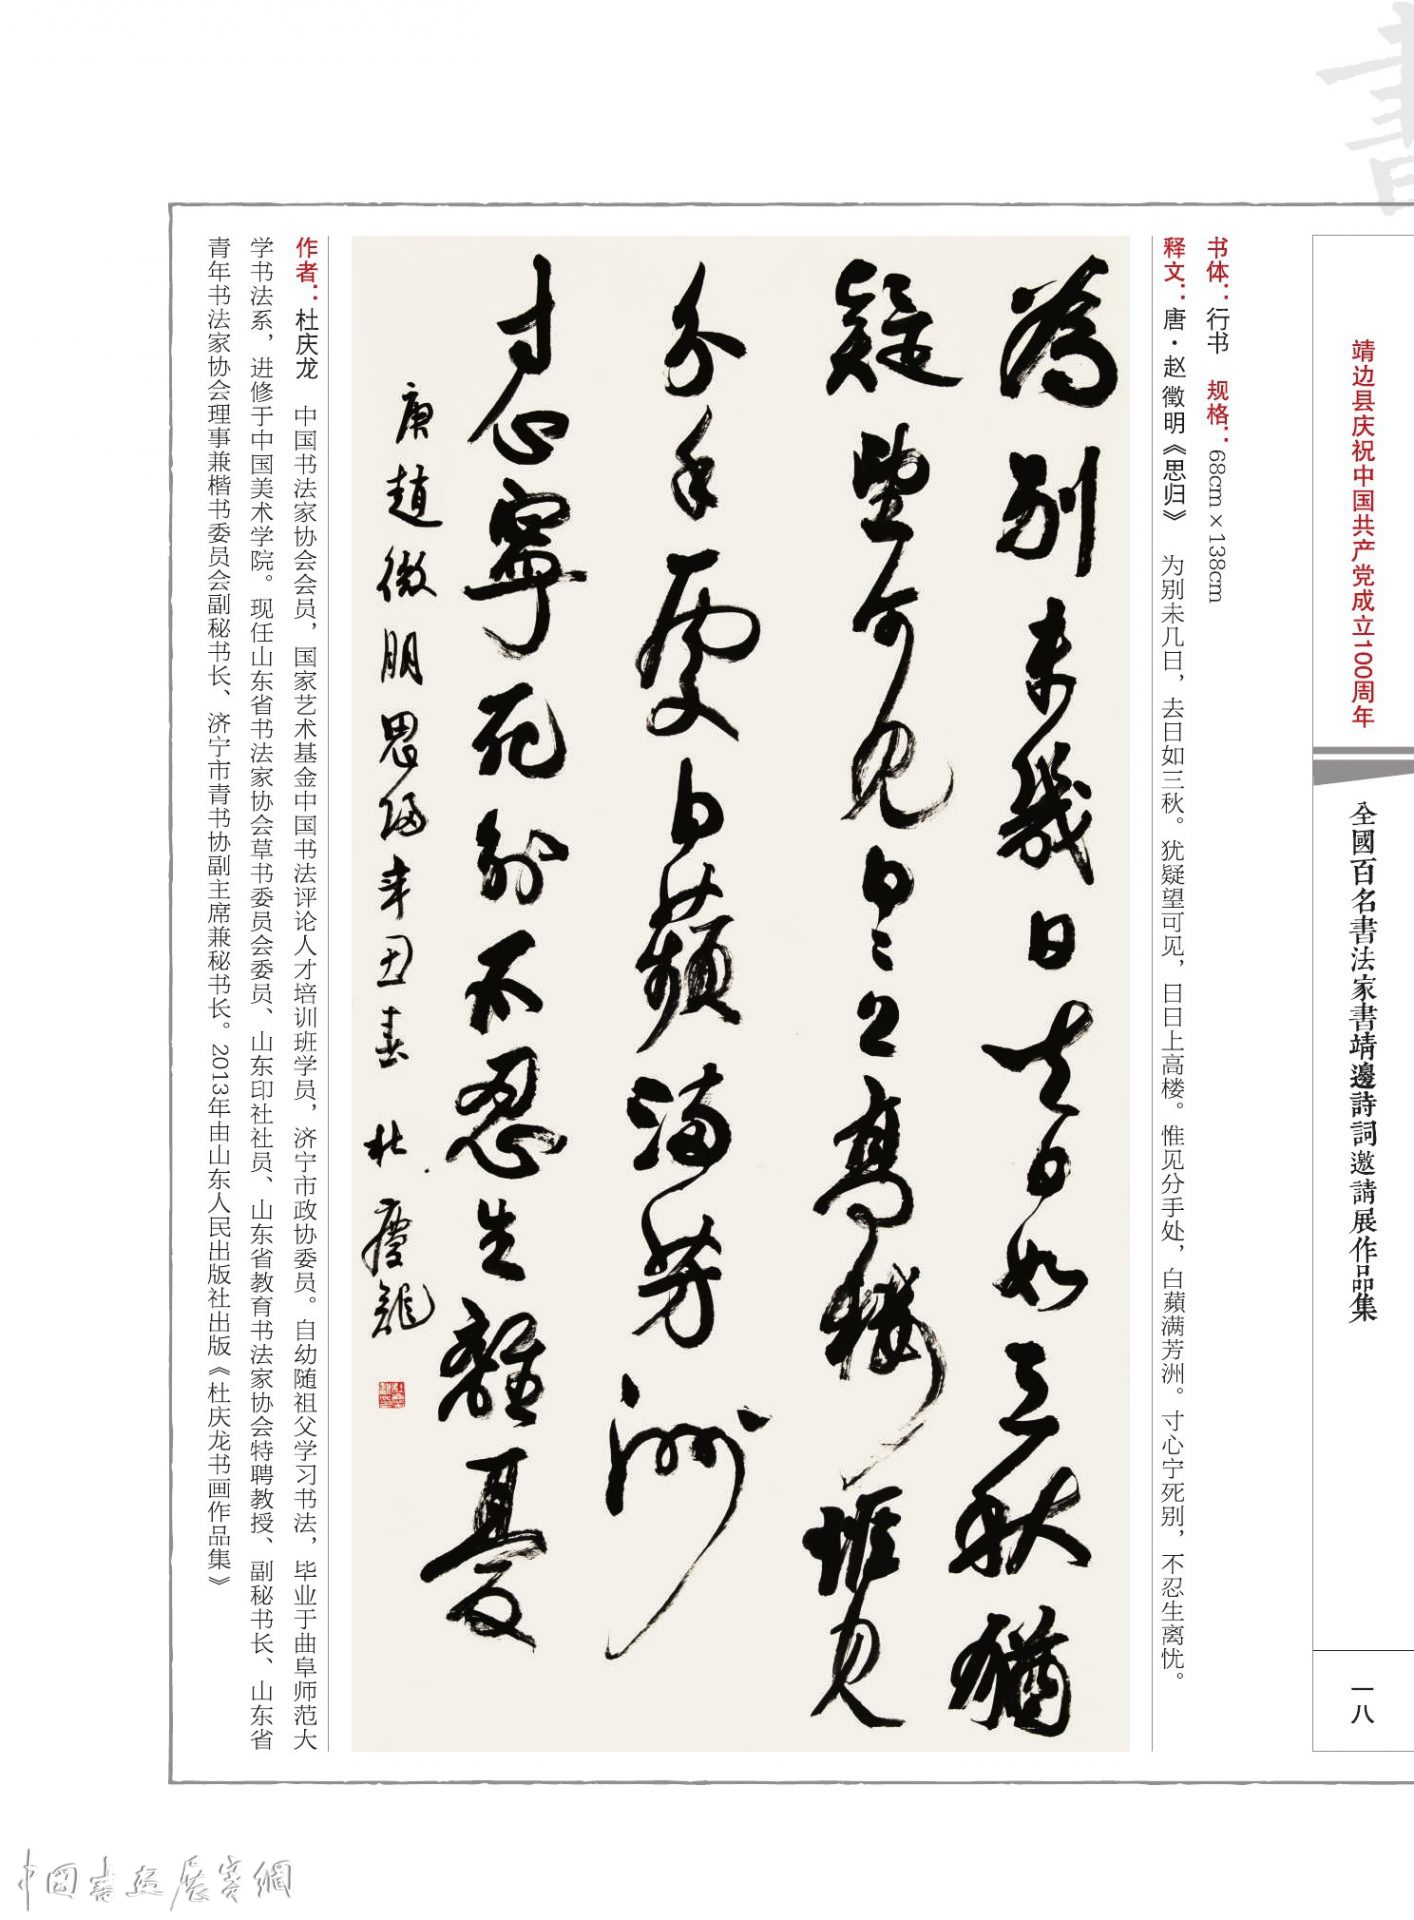 靖边县庆祝中国共产党成立100周年
全國百名書法家書靖邊詩詞邀請展作品集
一八
书体：行书　规格：68cm×138cm
释文：唐·赵徵明《思归》　为别未几日，去日如三秋。犹疑望可见，日日上高楼。惟见分手处，白蘋满芳洲。寸心宁死别，不忍生离忧。
為别未幾日去日如三秋猶
疑望可见日日上高樓惟见
分手處白蘋满芳洲
寸心寧死别不忍生離憂
唐趙微明思归辛丑春 杜慶龍
作者：杜庆龙　中国书法家协会会员，国家艺术基金中国书法评论人才培训班学员，济宁市政协委员。自幼随祖父学习书法，毕业于曲阜师范大
学书法系，进修于中国美术学院。现任山东省书法家协会草书委员会委员、山东印社社员、山东省教育书法家协会特聘教授、副秘书长、山东省
青年书法家协会理事兼楷书委员会副秘书长、济宁市青书协副主席兼秘书长。2013年由山东人民出版社出版《杜庆龙书画作品集》
書
中國書画展賽網